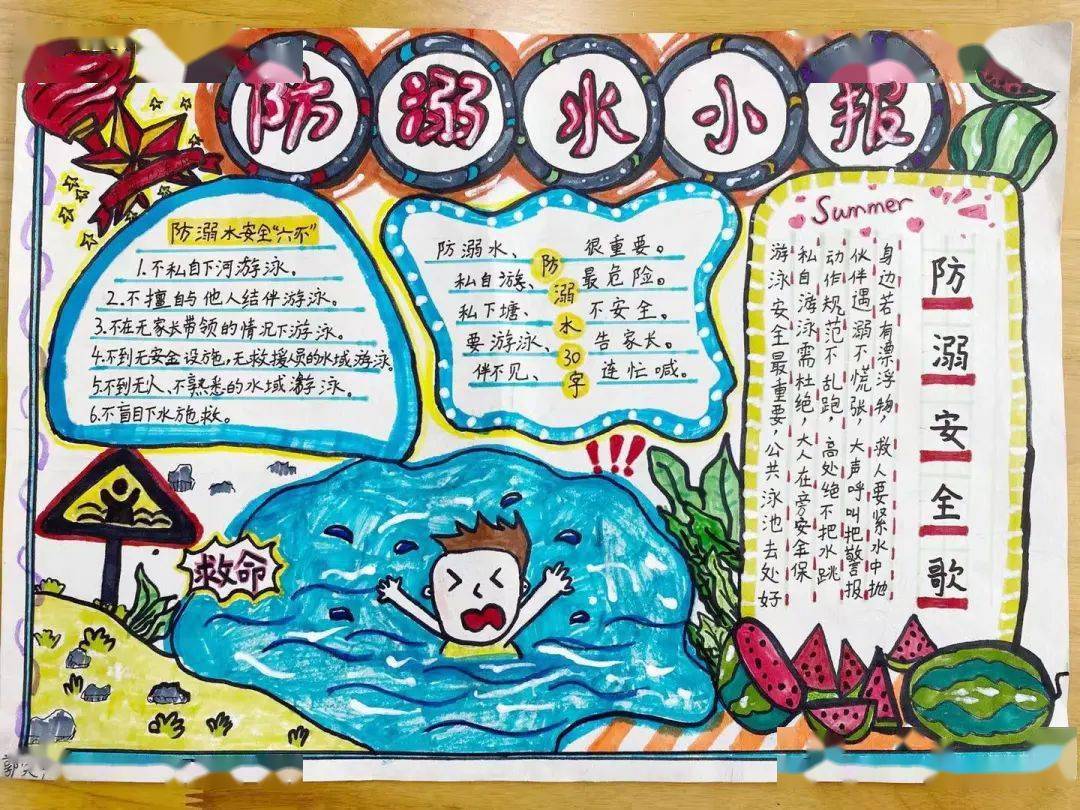 防溺水小报
防溺水安全“六不”
1.不私自下河游泳。
2.不擅自与他人结伴游泳。
3.不在无家长带领的情况下游泳。
4.不到无安全设施,无救援人员的水域游泳
5.不到无人、不熟悉的水域游泳。
6.不盲目下水施救。
防溺水30字
防溺水、很重要。
私自游、最危险。
私下塘、不安全。
要游泳、告家长。
伴不见、连忙喊。
Summer
防溺安全歌
身边若有漂浮物,救人要紧水中抛
伙伴遇溺不慌张,大声呼叫把警报
动作规范不乱跑,高处绝不把水跳
私自游泳需杜绝,大人在旁安全保
游泳安全最重要,公共泳池去处好
!!!
救命